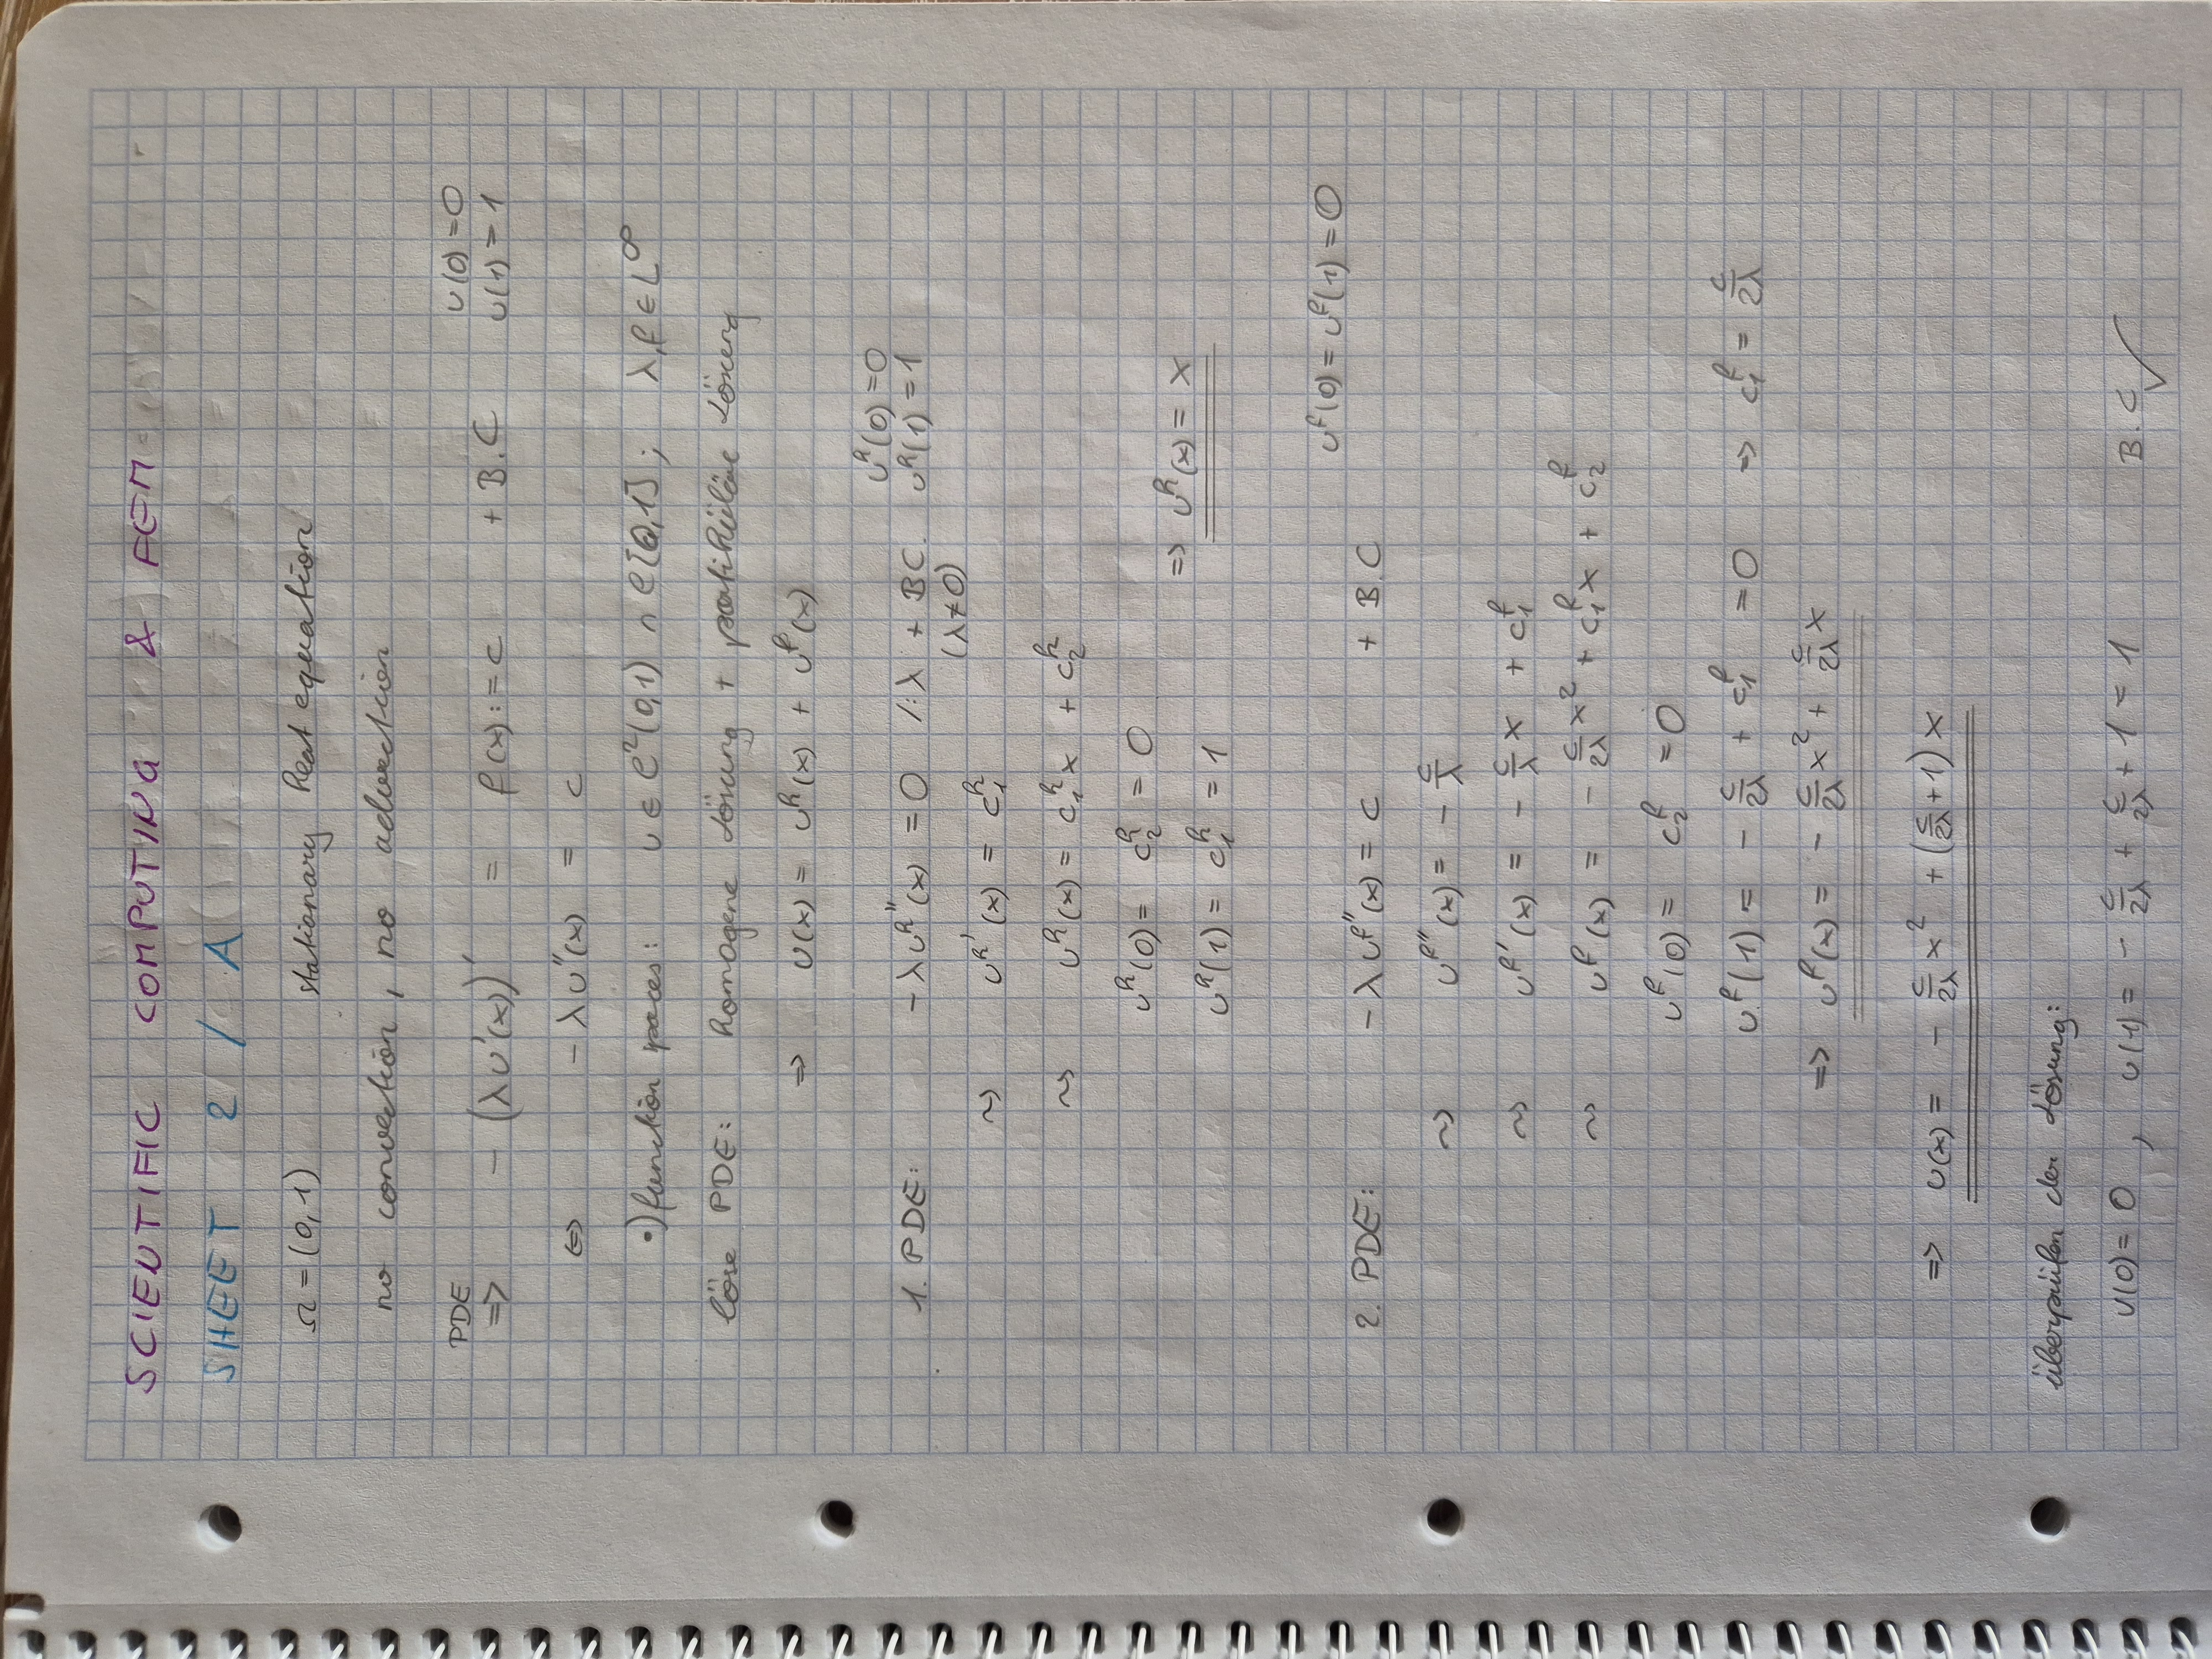 SCIENTIFIC COMPUTING & FEM
SHEET 2 / A
Ω = (0,1) stationary heat equation
no convection, no advection
PDE ⇒ - (λu'(x))' = f(x) := c + B.C u(0)=0 u(1)=1
⇔ - λu''(x) = c
•) function spaces: u ∈ C²(0,1) ∩ C[0,1]; λ, f ∈ L^∞
löse PDE: homogene Lösung + partikuläre Lösung
⇒ u(x) = u^h(x) + u^p(x)
1. PDE: - λu^h''(x) = 0 /:λ + BC. u^h(0)=0 u^h(1)=1
(λ≠0)
~> u^h'(x) = c_1^h
~> u^h(x) = c_1^h x + c_2^h
u^h(0) = c_2^h = 0
⇒ u^h(x) = x
u^h(1) = c_1^h = 1
2. PDE: - λu^p''(x) = c + B.C u^p(0) = u^p(1) = 0
~> u^p''(x) = - c/λ
~> u^p'(x) = - c/λ x + c_1^p
~> u^p(x) = - c/2λ x² + c_1^p x + c_2^p
u^p(0) = c_2^p = 0
u^p(1) = - c/2λ + c_1^p = 0 ⇒ c_1^p = c/2λ
⇒ u^p(x) = - c/2λ x² + c/2λ x
⇒ u(x) = - c/2λ x² + (c/2λ + 1) x
überprüfen der Lösung:
u(0) = 0 , u(1) = - c/2λ + c/2λ + 1 = 1 B.C ✓